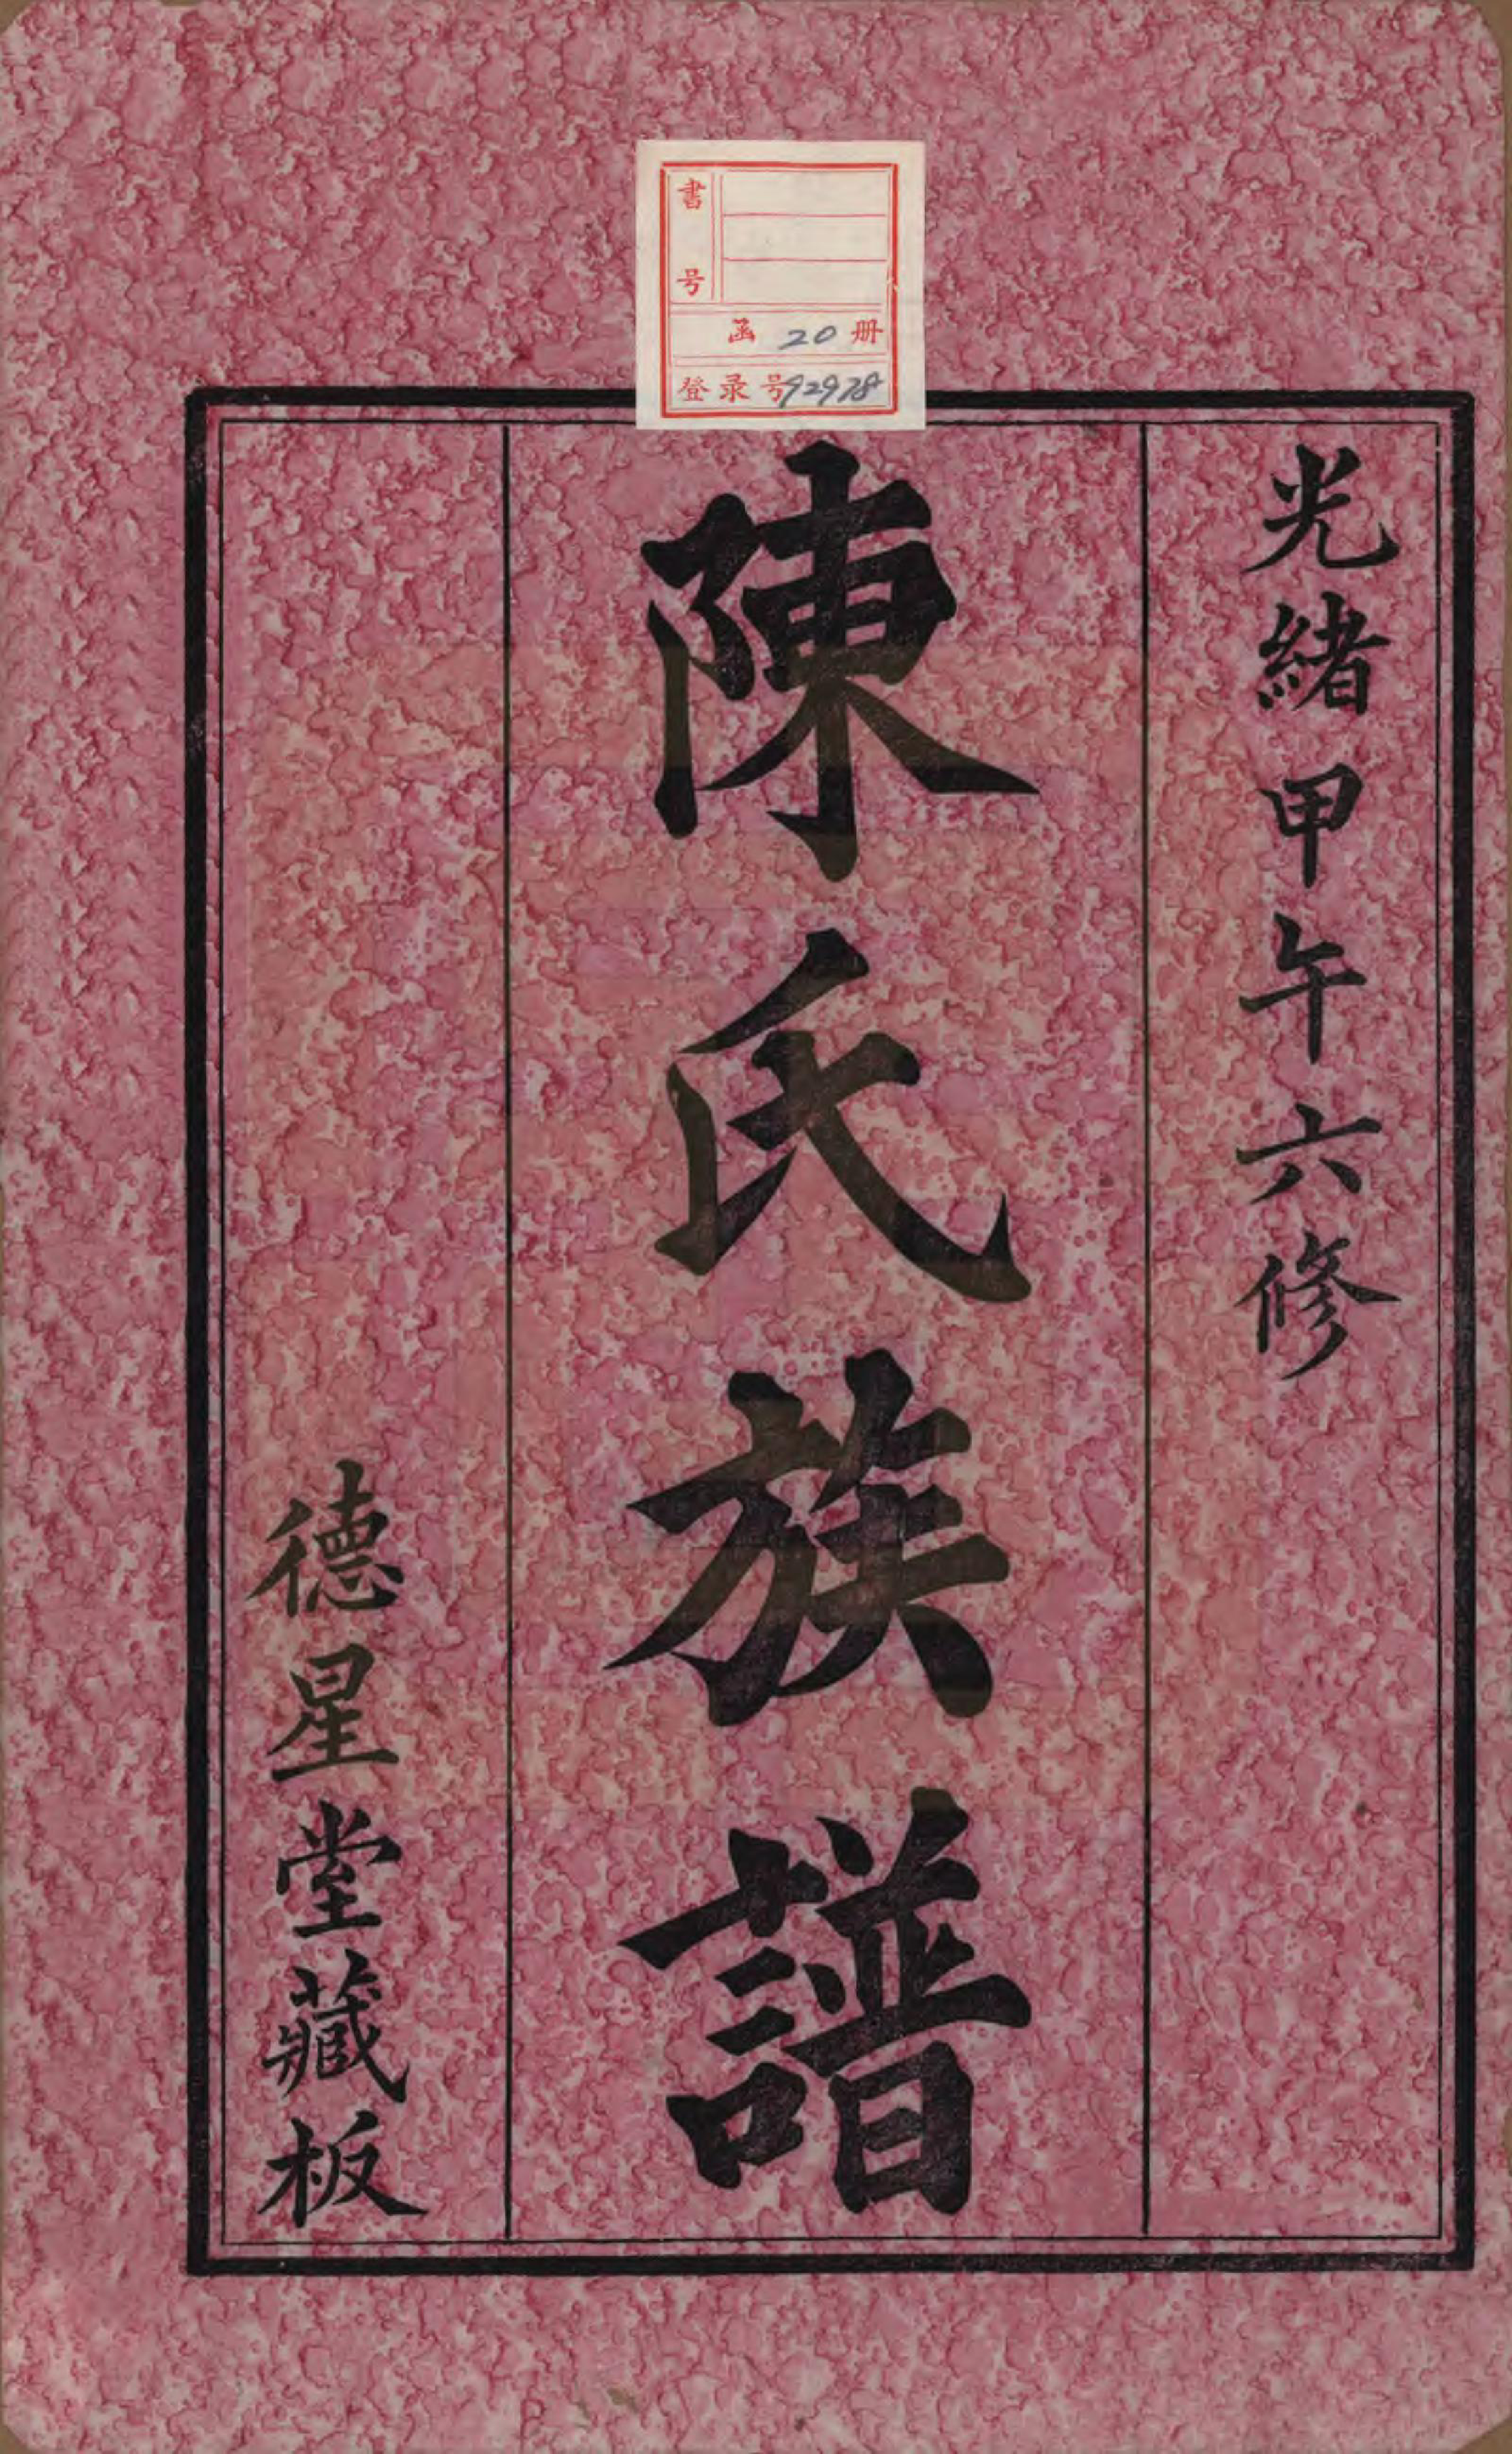 書号
函 20 册
登录号92978
光緒甲午六修
陳氏族譜
德星堂藏板